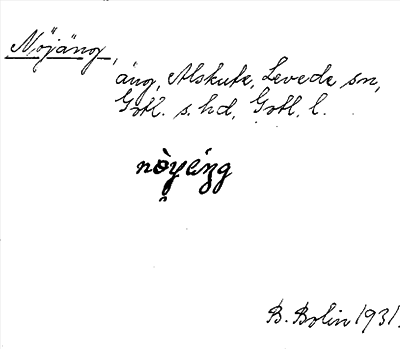 Nöjäng,
äng, Alskute, Levede sn,
Gotl. s. hd, Gotl. l.
nòyáng
B. Bolin 1931.